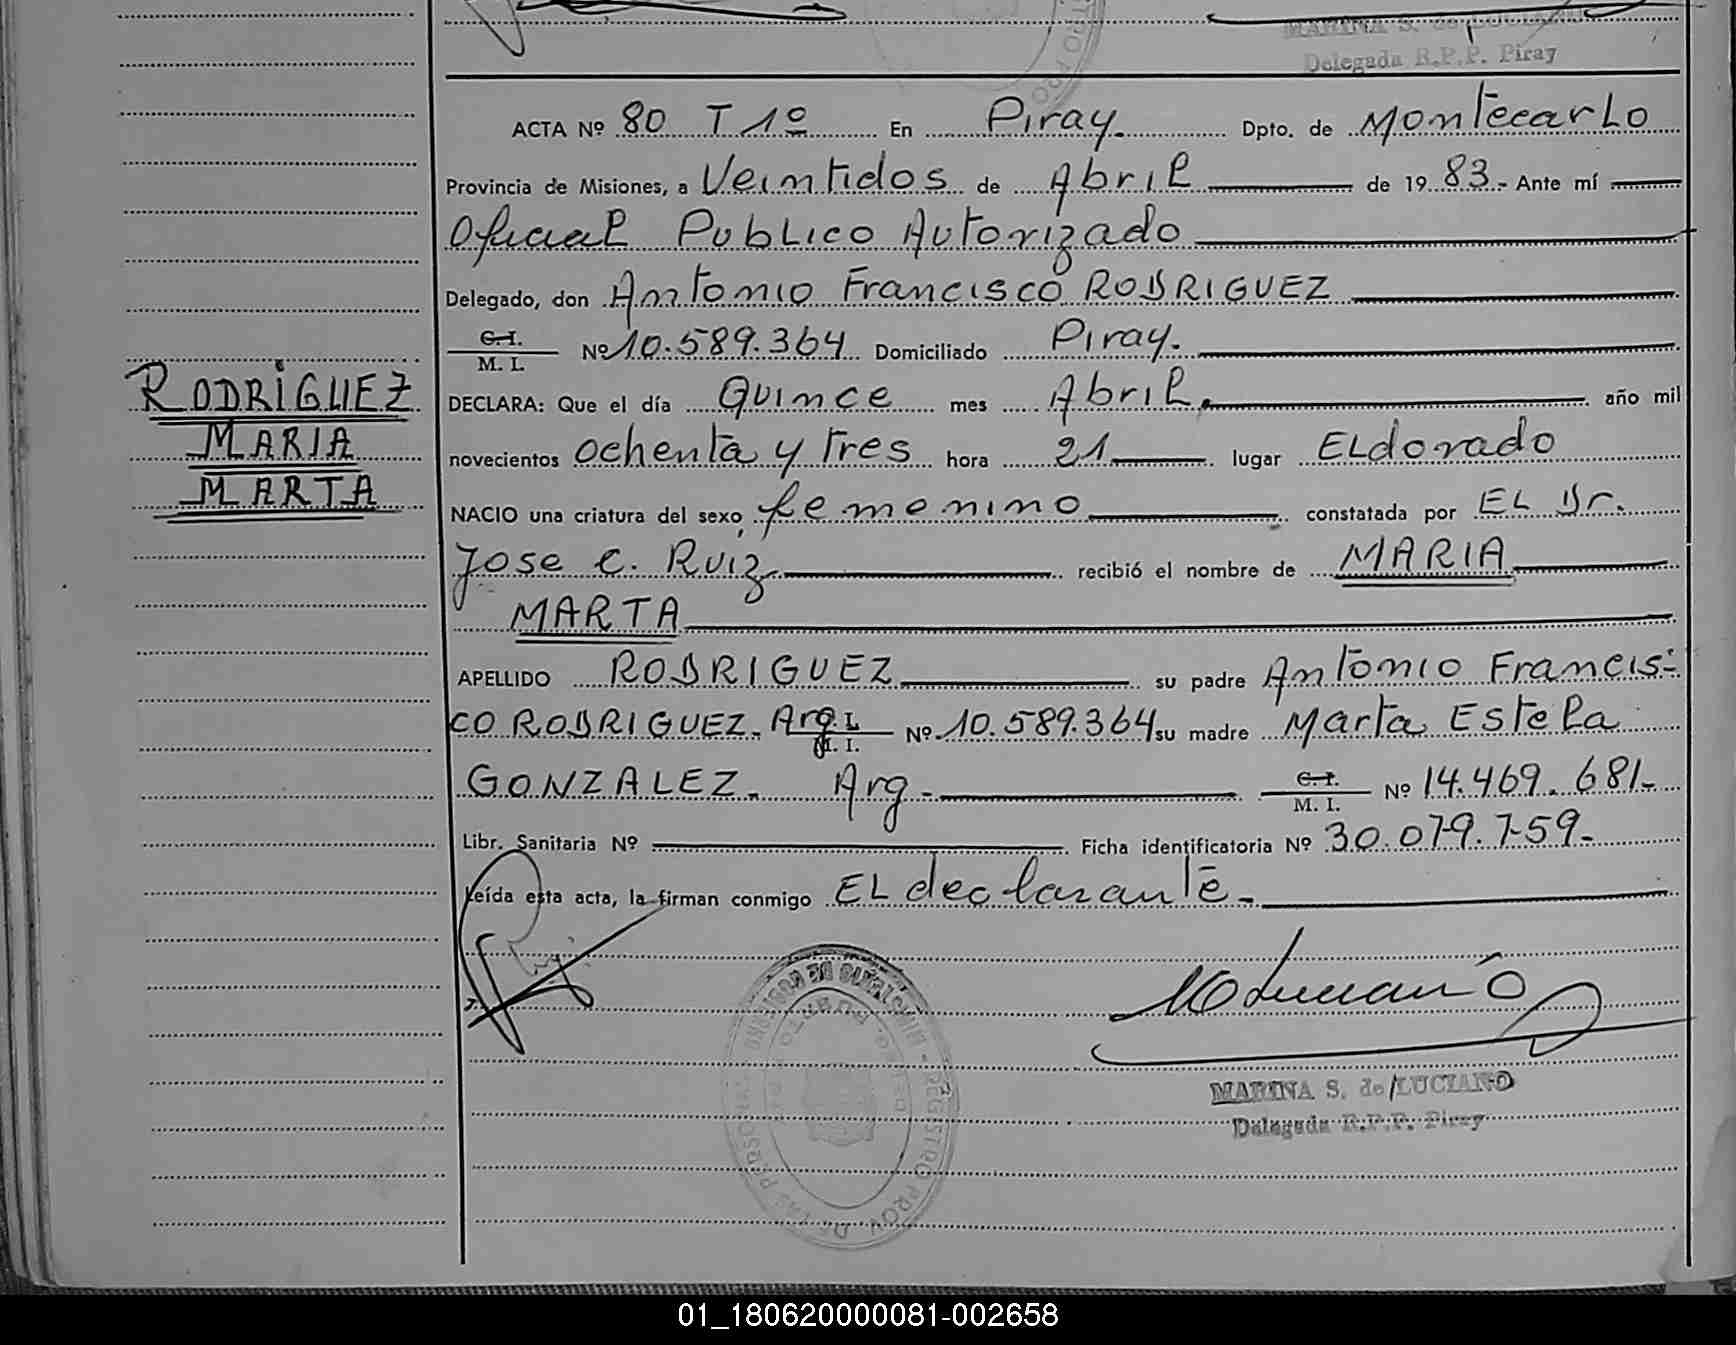 MARINA S. de LUCIANO
Delegada R.P.P. Piray
ACTA Nº 80 T 1º En Piray. Dpto. de Montecarlo
Provincia de Misiones, a Veintidos de Abril de 19 83.- Ante mí
Oficial Publico Autorizado
Delegado, don Antonio Francisco RODRIGUEZ
C.I.
M. I. Nº 10.589.364 Domiciliado Piray.
DECLARA: Que el día Quince mes Abril. año mil
novecientos ochenta y tres hora 21 lugar ELdorado
NACIO una criatura del sexo femenino constatada por EL Dr.
Jose C. Ruiz recibió el nombre de MARIA
MARTA
APELLIDO RODRIGUEZ su padre Antonio Francis-
CO RODRIGUEZ. Arg. M. I. Nº 10.589.364 su madre Marta Estela
GONZALEZ. Arg. C.I.
M. I. Nº 14.469.681-
Libr. Sanitaria Nº Ficha identificatoria Nº 30.079.759-
Leída esta acta, la firman conmigo EL declarante-
RODRIGUEZ
MARIA
MARTA
MARINA S. de LUCIANO
Delegada R.P.P. Piray
01_180620000081-002658